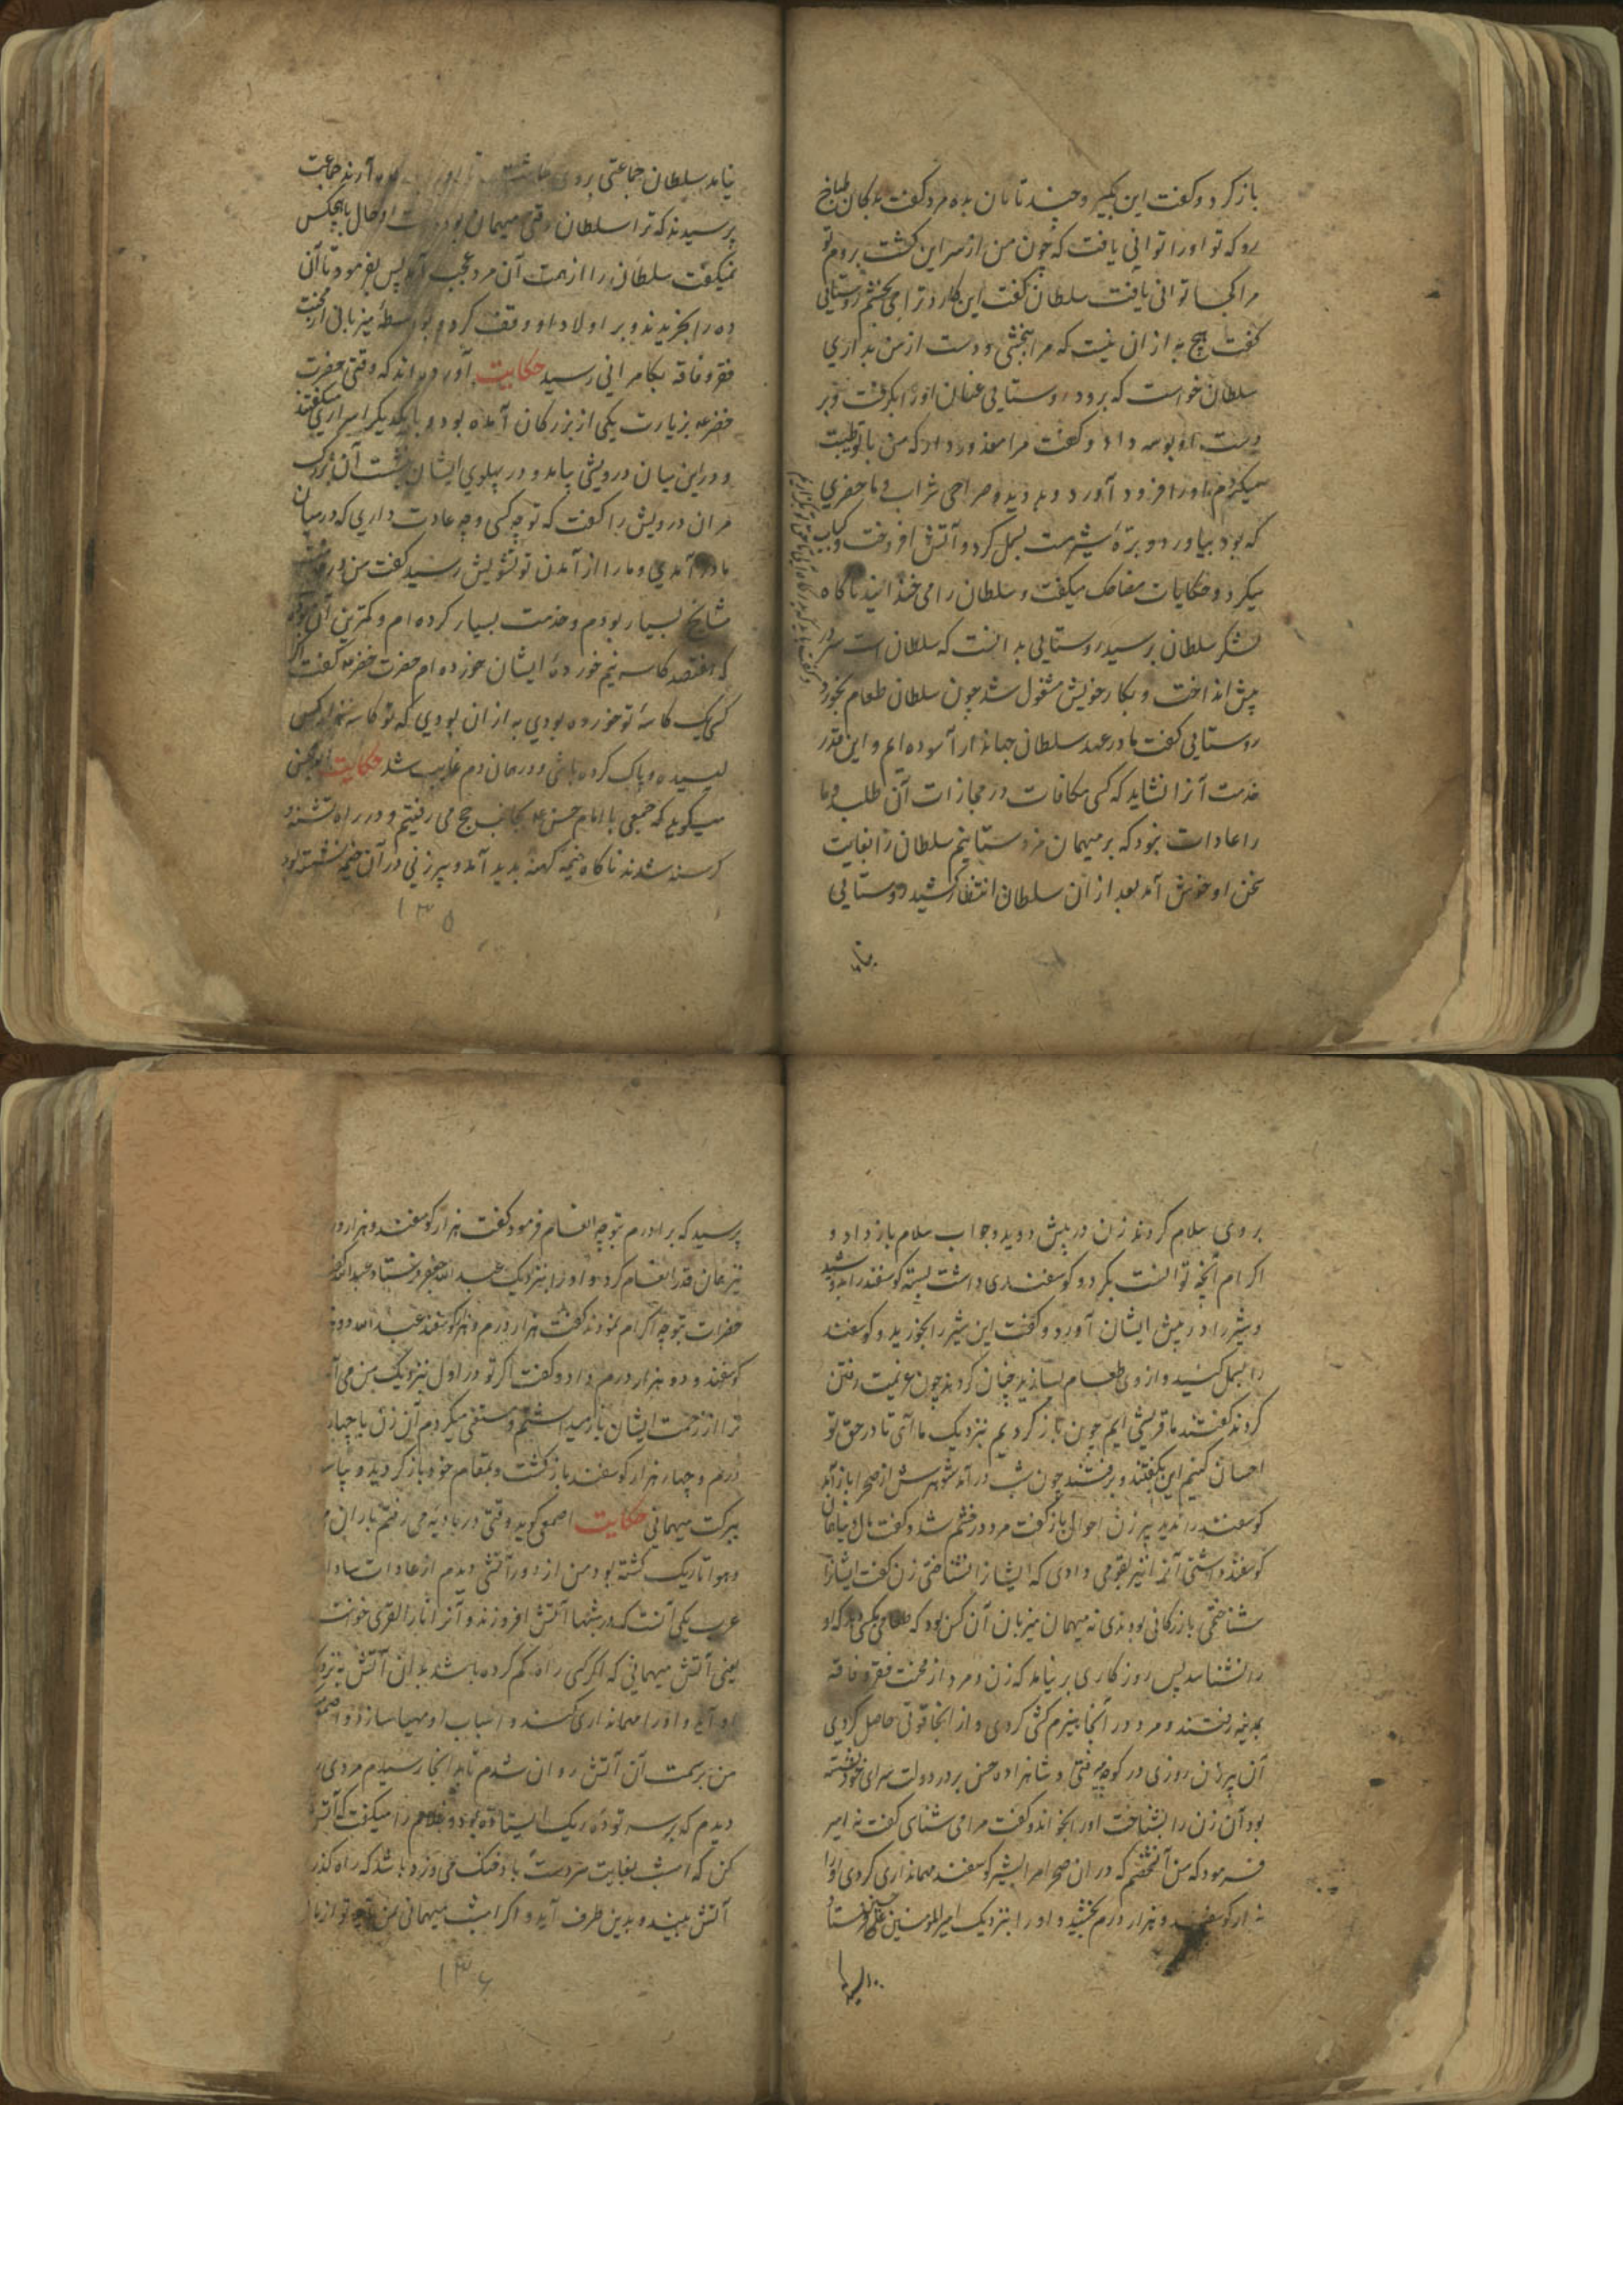 باز کرد و کفت این بکیر و چند تا نان بده مرد کفت بدکان طباخ
رو که تو او را توانی یافت که چون من از سر این کشت بروم تو
مرا کجا توانی یافت سلطان کفت این کارد ترا می بخشم روستایی
کفت هیچ به از ان نیست که مرا ببخشی و دست از من بداری
سلطان خواست که برود روستایی عنان او را بکرفت و بر
دست او بوسه داد و کفت مرا معذور دار که من با تو طیبت
میکردم او را فرود آورد و دوید و صراحی شراب و ما حضری
که بود بیاورد و برهٔ شیرمست بسمل کرد و آتش افروخت و کباب
میکرد و حکایات مضاحک میکفت و سلطان را می خندانید ناکاه
لشکر سلطان برسید روستایی بدانست که سلطان است سر در
پیش انداخت و بکار خویش مشغول شد چون سلطان طعام بخورد
روستایی کفت ما در عهد سلطان جهاندار آسوده ایم و این قدر
خدمت آنرا نشاید که کسی مکافات و مجازات آن طلبد و ما
را عادات نبود که بر میهمان مزد ستانیم سلطان را بغایت
سخن او خوش آمد بعد از ان سلطان انتظار کشید روستایی
نیامد
نیامد سلطان جماعتی بروی آرند جماعت
پرسیدند که ترا سلطان وقتی میهمان بوده است او حال با هیچکس
نمیکفت سلطان را از همت آن مرد عجب آمد پس بفرمود تا آن
ده را بخریدند و بر اولاد او وقف کرد و بواسطهٔ میزبانی از محنت
فقر و فاقه بکامرانی رسید حکایت آورده اند که وقتی حضرت
خضر ع بزیارت یکی از بزرکان آمده بود و با یکدیکر اسراری میکفتند
و در این میان درویشی بیامد و در پهلوی ایشان بنشست آن بزرک
مر ان درویش را کفت که تو چه کسی و چه عادت داری که در میان
ما در آمدی و ما را از آمدن تو تشویش رسید کفت من در خدمت
مشایخ بسیار بودم و خدمت بسیار کرده ام و کمترین آن بوده
که هفتصد کاسه نیم خوردهٔ ایشان خورده ام حضرت خضر ع کفت اکر
کسی یک کاسهٔ تو خورده بودی به از ان بودی که تو کاسه هفتصد کس
لیسیده و پاک کرده باشی و در همان دم غایب شد حکایت
میکوید که جمعی با امام حسن ع بجانب حج می رفتیم و در راه تشنه و
کرسنه شدند ناکاه خیمه کهنه بدید آمد و پیر زنی در آن خیمه نشسته بود
۱۳۵
بروی سلام کردند زن در پیش دوید و جواب سلام باز داد و
اکرام آنچه توانست بکرد و کوسفندی داشت بسته کوسفند را بدوشید
و شیر را در پیش ایشان آورد و کفت این شیر را بخورید و کوسفند
را بسمل کنید و از وی طعام بسازید چنان کردند چون عزیمت رفتن
کردند کفتند ما قریشی ایم چون باز کردیم نزدیک ما آی تا در حق تو
احسان کنیم این بکفتند و برفتند چون شب در آمد شوهرش از صحرا باز آمد
کوسفند را ندید پیر زن احوال باز کفت مرد در خشم شد و کفت مال دنیا همان
کوسفند داشتی آنرا نیز بقومی دادی که ایشانرا نشناختی زن کفت ایشانرا
شناختمی بازرکانی بودندی نه میهمان میزبان آن کس بود که طعامی بکسی دهد که او
را نشناسد پس روزکاری بر نیامد که زن و مرد از محنت فقر و فاقه
بمدینه رفتند و مرد در آنجا هیزم کشی کردی و از آنجا قوتی حاصل کردی
آن پیر زن روزی در کوچه میرفتی و شاهزاده حسن بر در دولت سرای خود نشسته
بود آن زن را بشناخت او را بخواند و کفت مرا می شناسی کفت نه امیر
فرمود که من آنشخصم که در ان صحرا مرا بشیر کوسفند مهمانداری کردی او را
هزار کوسفند و هزار درم بخشید و او را بنزدیک امیر المومنین حسین علی فرستاد
پرسید که برادرم بتو چه انعام فرمود کفت هزار کوسفند و هزار درم
نیز همان قدر انعام کرد و او را بنزدیک عبد الله جعفر فرستاد عبد الله کفت
حضرات بتو چه اکرام نمودند کفت هزار درم و هزار کوسفند عبد الله دو هزار
کوسفند و دو هزار درم داد و کفت اکر تو در اول بنزدیک من می آمدی
ترا از زحمت ایشان باز میداشتم و مستغنی میکردم آن زن با چهار هزار
درم و چهار هزار کوسفند باز کشت و بمقام خود باز کردید و
ببرکت میهمانی حکایت اصمعی کوید وقتی در بادیه می رفتم باران
و هوا تاریک کشته بود من از دور آتشی دیدم از عادات سادات
عرب یکی آنست که در شبها آتش افروزند و آنرا نار القری خوانند
یعنی آتش میهمانی که اکر کسی راه کم کرده باشد بدان آتش بنزدیک
او آید و او را مهمانداری کنند و اسباب او مهیا سازند
من بر سمت آن آتش روان شدم تا بدانجا رسیدم مردی را
دیدم که بر سر تودهٔ ریک ایستاده بود و غلام را میکفت که آتش
کن که امشب بغایت سردست و باد خنک می وزد باشد که راه کذری
آتش ببیند و بدین طرف آید و اکر امشب میهمانی من
۱۳۶